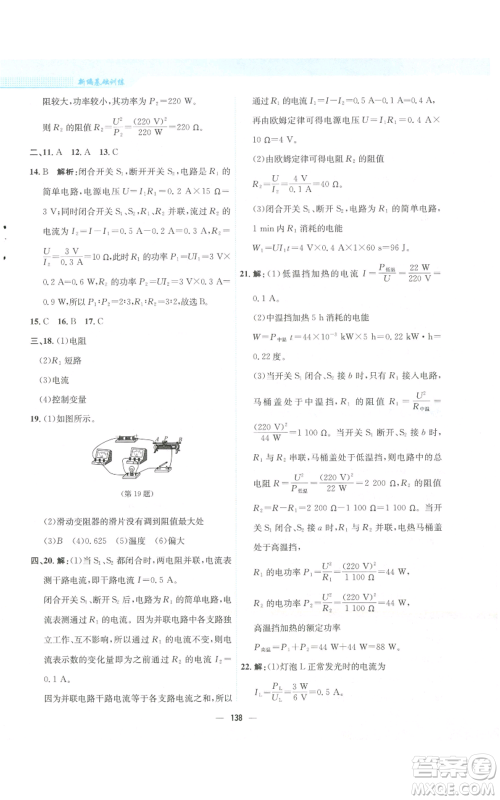 新编基础训练
阻较大，功率较小，其功率为 P₂=220 W。
则 R₂ 的阻值 U²/P₂=(220 V)²/220 W=220 Ω。
二、11. A 12. A 13. C
14. B 解析：闭合开关 S₁，断开开关 S₂，电路是 R₁ 的
简单电路，电源电压为 U=I₁R₁=0.2 A×15 Ω=
3 V；同时闭合开关 S₁、S₂，R₁、R₂ 并联，流过 R₂ 的
电流为 I₂=I−I₁=0.5 A−0.2 A=0.3 A，R₂ 的阻值
为 U/I₂=3 V/0.3 A=10 Ω，并联电路各支路两端电压
相等，由 P=UI 可知，电阻 R₁ 和 R₂ 的功率之比为
P₁∶P₂=I₁∶I₂=2∶3，故选 B。
15. C 16. B 17. C
三、18. (1)电阻
(2)R₂ 短路
(3)电流
(4)控制变量
19. (1)如图所示。
(第 19 题)
(2)滑动变阻器的滑片没有调到阻值最大处
(3)B (4)0.625 (5)温度
四、20. 解：(1)当 S₁、S₂ 都闭合时，两电阻并联，电流表
测干路电流，干路电流 I=0.5 A。
闭合开关 S₁、断开开关 S₂ 时，电路为 R₁ 的简单
电路，电流表测通过 R₁ 的电流，因并联电路各支路
独立工作、互不影响，且电源的电压不变，所以，此时
电流表示数的变化量即为通过 R₂ 的电流，则 I₂=
0.1 A。
因为并联电路干路电流等于各支路电流之和，所以
通过 R₁ 的电流 I₁=0.5 A−0.1 A=0.4 A。
再由欧姆定律可得电源电压 U=I₁R₁=0.4 A×
10 Ω=4 V。
(2)由欧姆定律可得电阻 R₂ 的阻值
R₂=U/I₂=4 V/0.1 A=40 Ω。
(3)闭合开关 S₁、断开开关 S₂ 时，为 R₁ 的简单电路，
1 min 内 R₁ 消耗的电能
W₁=UI₁t=4 V×0.4 A×60 s=96 J。
21. 解：(1)低温挡加热的电流 I=P低温/U=22 W/220 V=
0.1 A。
(2)中温挡加热 5 h 消耗的电能
W=P中温t=44×10⁻³ kW×5 h=0.22 kW·h=
0.22 度。
(3)当开关 S₁ 闭合、S₂ 接 b 时，电路为 R₁ 的简单电路，
马桶盖处于中温挡，R₁ 的阻值 R₁=U²/R中温=
(220 V)²/44 W=1 100 Ω，当开关 S₁ 断开、S₂ 接 b
时，R₁ 与 R₂ 串联，马桶盖处于低温挡，R₂ 的阻值
R₂=U²/P低温−R₁=(220 V)²/22 W−1 100 Ω=2 200 Ω−
1 100 Ω=1 100 Ω，
当开关 S₁ 闭合、S₂ 接 a 时，R₁ 与 R₂ 并联，马桶盖
处于高温挡，
R₁ 的电功率 P₁=U²/R₁=(220 V)²/1 100 Ω=44 W，
R₂ 的电功率 P₂=U²/R₂=(220 V)²/1 100 Ω=44 W，
高温挡加热的额定功率
P高温=P₁+P₂=44 W+44 W=88 W。
22. 解：(1)灯泡 L 正常发光时的电流为
I_L=P_L/U_L=3 W/6 V=0.5 A。
138